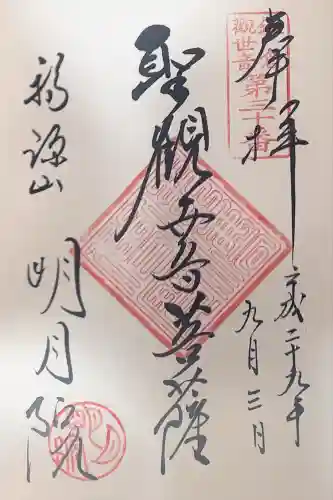 奉拝
平成二十九年
九月三日
鎌倉
観世音第三十番
聖観世音菩薩
福源山
明月院